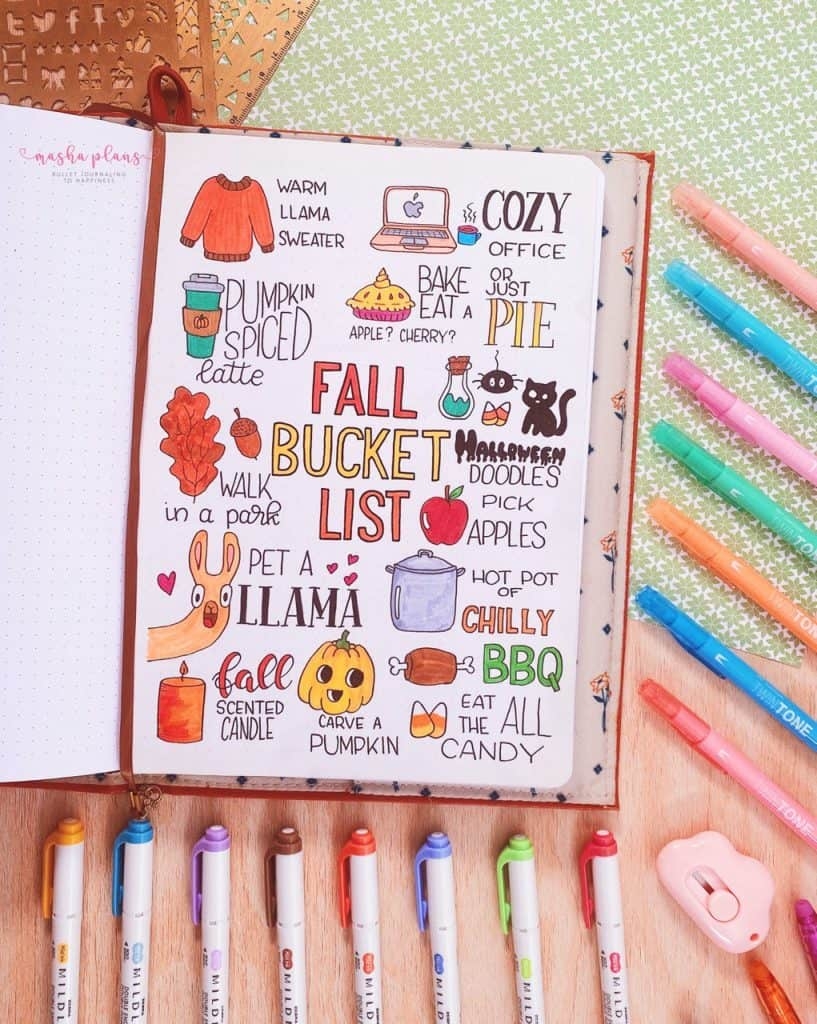 masha plans
BULLET JOURNALING
TO HAPPINESS
WARM
LLAMA
SWEATER
COZY
OFFICE
PUMPKIN
SPICED
latte
BAKE OR
EAT A JUST
PIE
APPLE? CHERRY?
FALL
BUCKET
LIST
HALLOWEEN
DOODLES
WALK
in a park
PICK
APPLES
PET A
LLAMA
HOT POT
OF
CHILLY
BBQ
fall
SCENTED
CANDLE
CARVE A
PUMPKIN
EAT ALL
THE
CANDY
TWINTONE
TWINTONE
TWINTONE
TWINTONE
TWINTONE
TWINTONE
TWINTONE
MILDL
MILDL
MILDL
MILDL
MILDL
MILDL
MILDL
MILDL